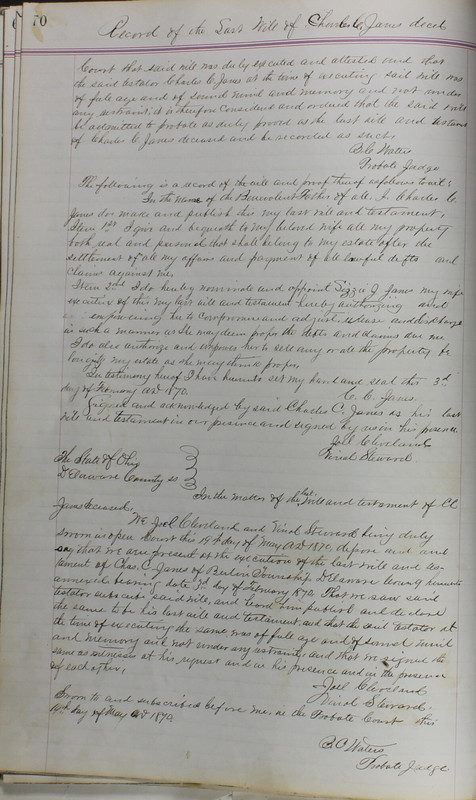 70
Record of the Last Will of Charles C. Janes decd
Court that said will was duly executed and attested and that
the said testator Charles C. Janes at the time of executing said will was
of full age and of sound mind and memory and not under
any restraint, it is therefore considered and ordered that the said will
be admitted to probate as duly proved as the last will and testament
of Charles C. Janes deceased and be recorded as such.
B. C. Waters
Probate Judge
The following is a record of the will and proof thereof as follows to wit:
In the name of the Benevolent Father of all. I Charles C.
Janes do make and publish this my last will and testament.
Item 1st I give and bequeath to my beloved wife all my property
both real and personal that shall belong to my estate after the
settlement of all my affairs and payment of all lawful debts and
claims against me.
Item 2nd I do hereby nominate and appoint Lizzie J. Janes my wife
executrix of this my last will and testament hereby authorizing and
empowering her to compromise and adjust, release and discharge
in such a manner as she may deem proper the debts and claims due me
I do also authorize and empower her to sell any or all the property be
longing my estate as she may think proper.
In testimony hereof I have hereunto set my hand and seal this 3d
day of February AD 1870.
C. C. Janes.
Signed and acknowledged by said Charles C. Janes as his last
will and testament in our presence and signed by us in his presence
Joel Cleveland
Vinal Steward
The State of Ohio
Delaware County ss
In the matter of the last Will and testament of C. C.
Janes deceased.
We Joel Cleveland and Vinal Steward being duly
sworn in open Court this 19th day of May AD 1870, depose and
say that we were present at the execution of the last will and tes-
tament of Chas. C. Janes of Berlin Township Delaware County hereunto
annexed bearing date 3d day of February 1870. That we saw said
testator subscribe said will, and heard him publish and declare
the same to be his last will and testament, and that the said testator at
the time of executing the same was of full age and of sound mind
and memory and not under any restraint, and that we signed the
same as witnesses at his request and in his presence and in the presence
of each other,
Joel Cleveland
Vinal Steward.
Sworn to and subscribed before me, in the Probate Court this
19th day of May AD 1870.
B. C. Waters
Probate Judge